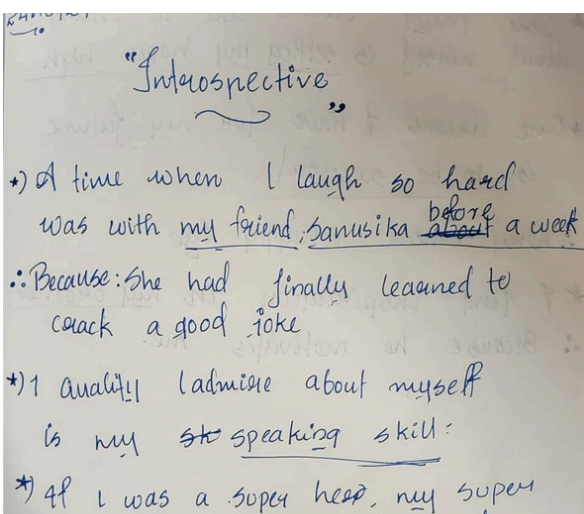 "Introspective"
*) A time when I laugh so hard
was with my friend, Sanusika before a week
∴ Because: She had finally learned to
crack a good joke
*) 1 Quality I admire about myself
is my speaking skill:
*) If I was a super hero, my super